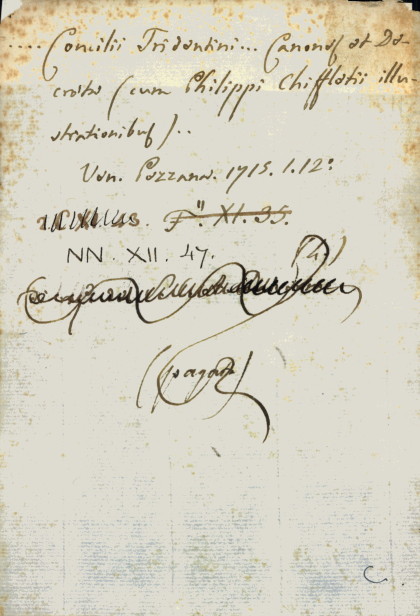 .... Concilii Tridentini... Canones et De-
creta (cum Philippi Chiffletii illu
strationibus)..
Ven. Pezzana. 1715. 1.12°
F". XI. 35.
NN. XII. 47.
(4)
(pagat
C